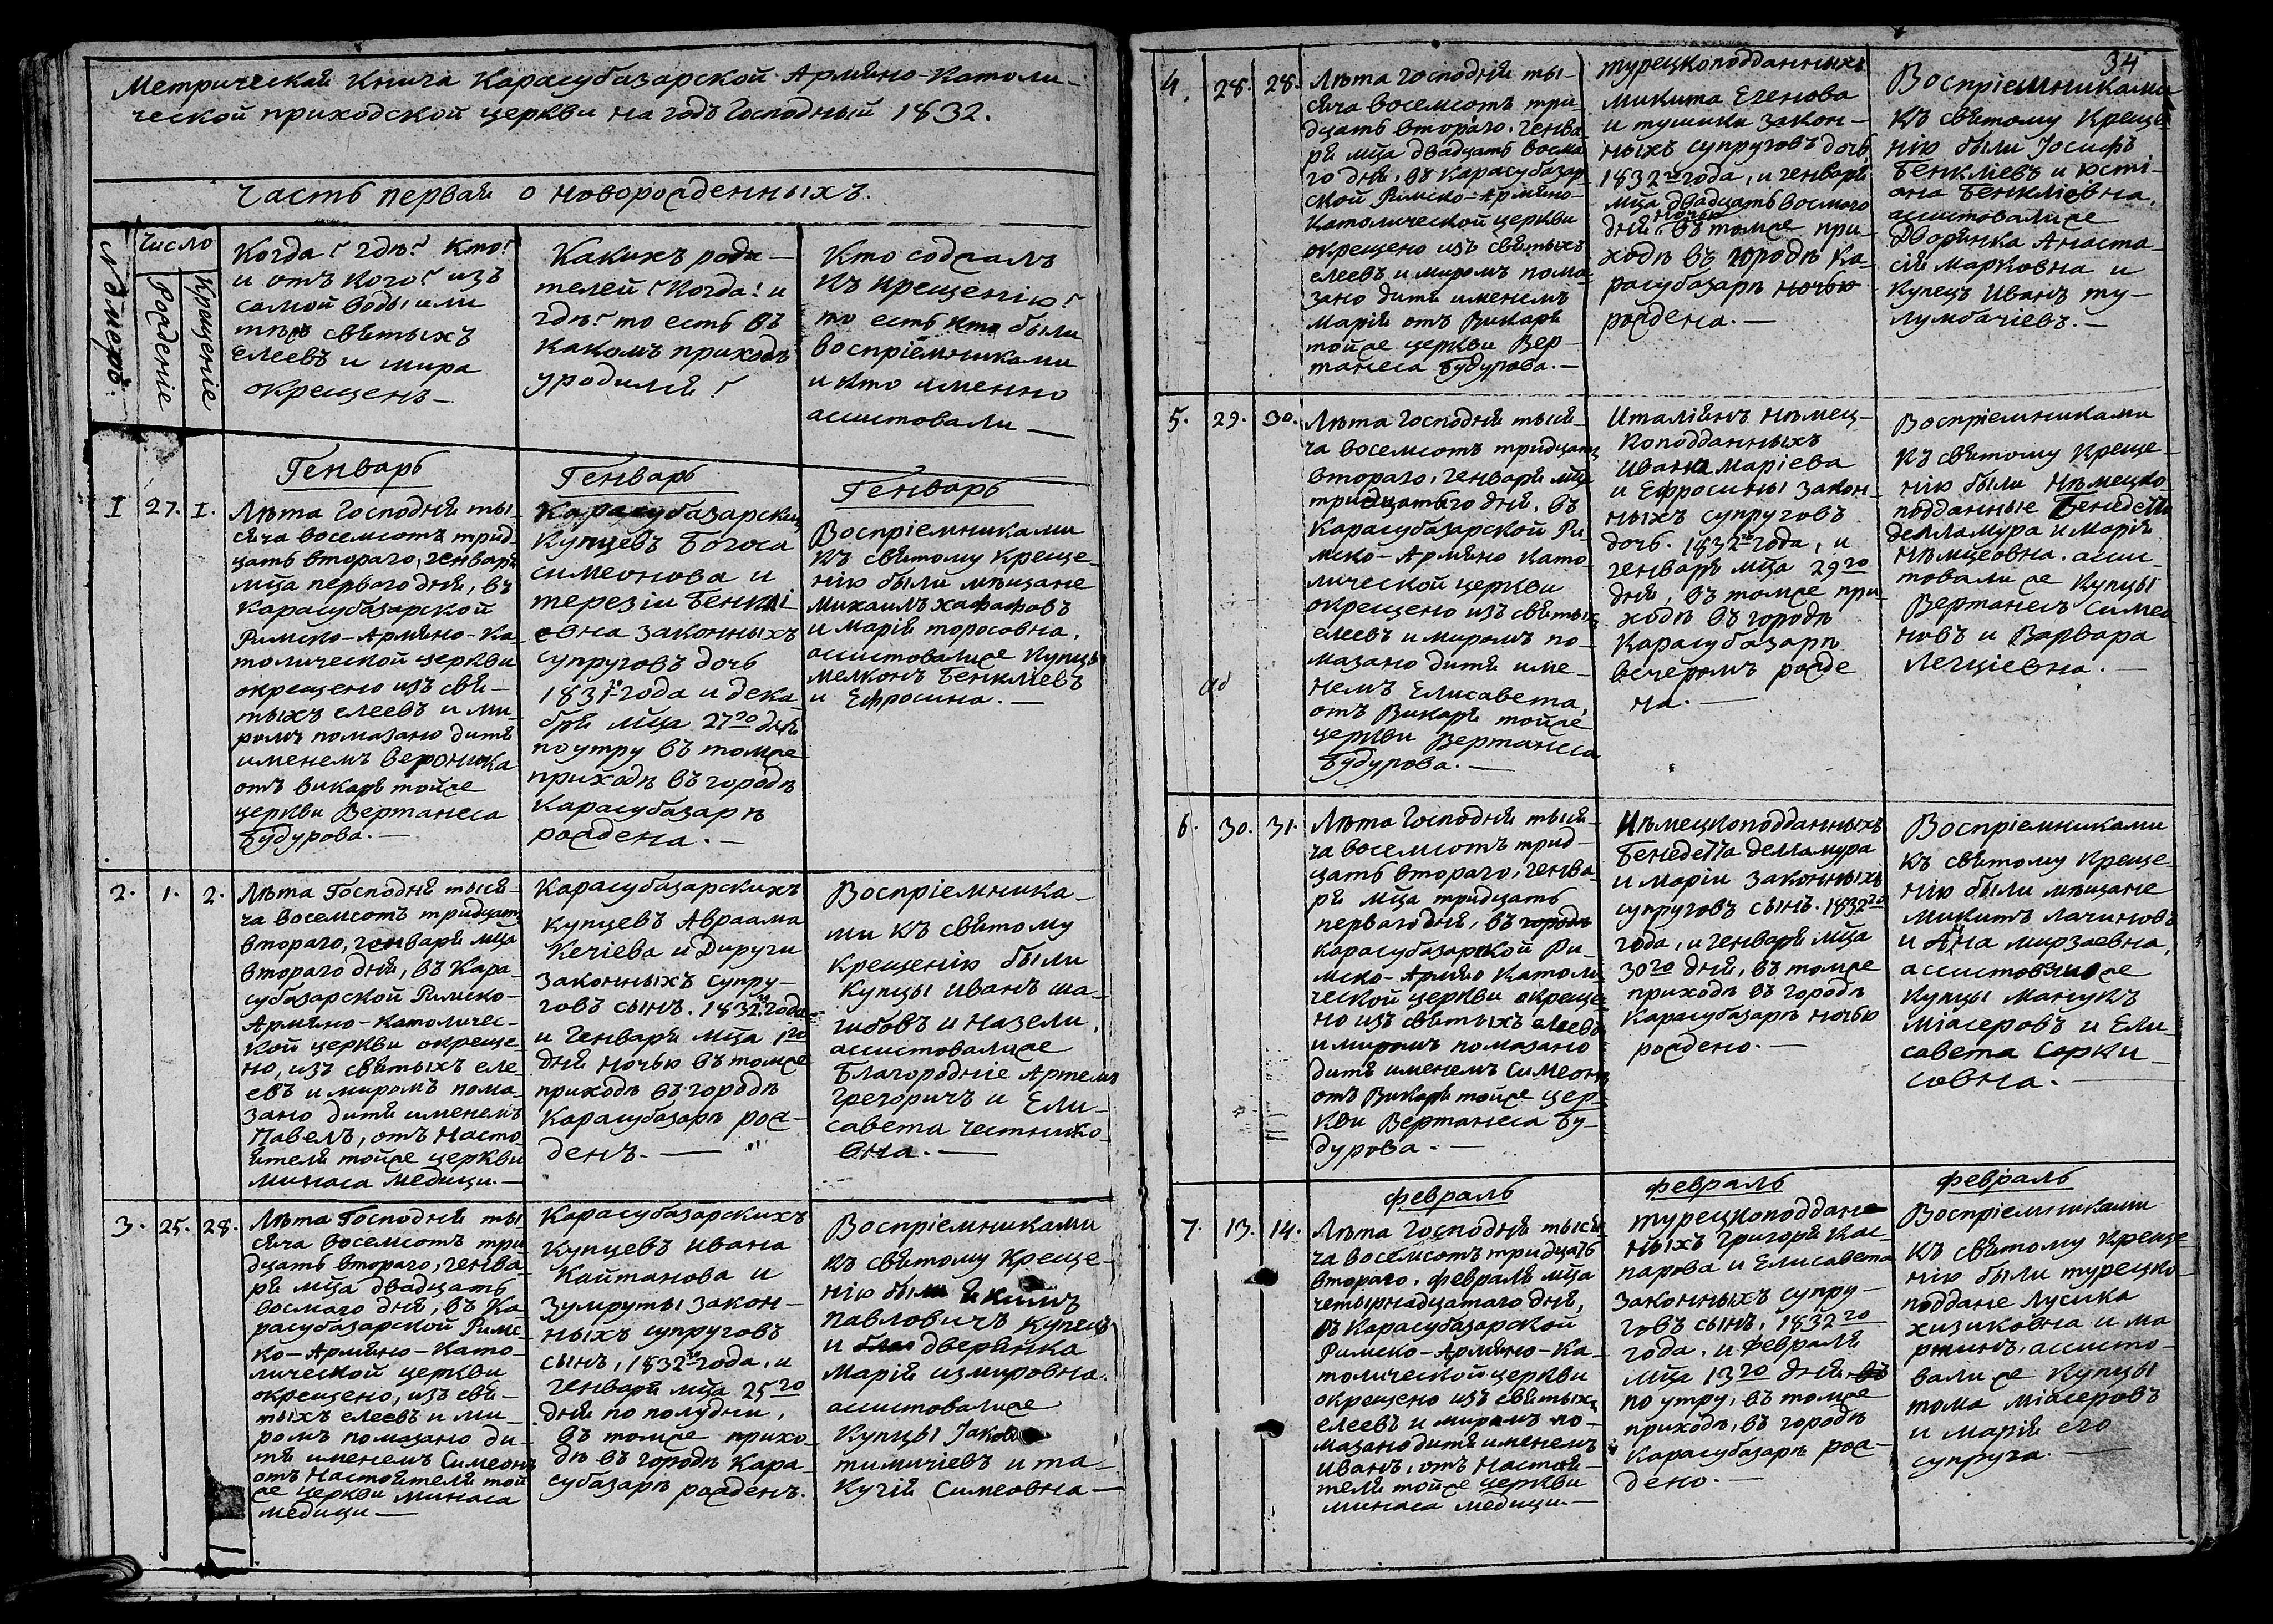 Метрическая Книга Карасубазарской Армяно-Католи-
ческой приходской церкви на годъ Господный 1832.
Часть первая о новорожденныхъ.
Нумеръ.
Число
Рожденіе
Крещеніе
Когда? гдѣ? кто?
и отъ кого? изъ
самой воды или
тѣхъ святыхъ
елеевъ и мира
окрещенъ —
Какихъ роди-
телей? Когда? и
гдѣ? то есть въ
какомъ приходѣ
уродился?
Кто содѣалъ
къ крещенію?
то есть кто были
воспріемниками
и кто именно
асистовали —
Генварь
Генварь
Генварь
I
27.
I.
Лѣта Господня ты-
сяча восемсотъ трид-
цать втораго, генваря
мца перваго дня, въ
Карасубазарской
Римско-Армяно-Ка-
толической церкви
окрещено изъ свя-
тыхъ елеевъ и ми-
ромъ помазано дитя
именемъ Вероника
отъ викаря тойже
церкви Вертанеса
Будурова. —
Карасубазарскихъ
Купцевъ Богоса
Симеонова и
Терезіи Бенклі-
евна законныхъ
супруговъ дочь
1831го года и дека-
бря мца 27го дня
по утру въ томже
приходѣ въ городѣ
Карасубазарѣ
рождена. —
Воспріемниками
къ святому креще-
нію были мѣщане
Михаилъ Хафафовъ
и Марія Торосовна.
асистовалиже Купцы
Мелконъ Бенкліевъ
и Ефросина. —
2.
1.
2.
Лѣта Господня тыся-
ча восемсотъ тридцать
втораго, генваря мца
втораго дня, въ Кара-
субазарской Римско-
Армяно-Католичес-
кой церкви окреще-
но, изъ святыхъ еле-
евъ и миромъ пома-
зано дитя именемъ
Павелъ, отъ Насто-
ятеля тойже церкви
Минаса Медици. —
Карасубазарскихъ
купцевъ Авраама
Кечіева и Дируги
законныхъ супру-
говъ сынъ. 1832го года
и Генваря мца 1го
дня ночью въ томже
приходѣ въ городѣ
Карасубазарѣ рож-
денъ. —
Воспріемника-
ми къ святому
крещенію были
Купцы Иванъ Ша-
гибовъ и Назели.
асистовалиже
Благородніе Артемъ
Грегоричъ и Ели-
савета Честнико-
вна. —
3.
25.
28.
Лѣта Господня ты
сяча восемсотъ три
дцать втораго, генва-
ря мца двадцать
восмаго дня, въ Ка-
расубазарской Римс-
ко-Армяно-Като-
лической церкви
окрещено, изъ свя-
тыхъ елеевъ и ми-
ромъ помазано ди-
тя именемъ Симеонъ
отъ Настоятеля той
же церкви Минаса
Медици —
Карасубазарскихъ
Купцевъ Ивана
Кайтанова и
Зумруты закон-
ныхъ супруговъ
сынъ, 1832го года, и
Генваря мца 25го
дня по полудни,
въ томже прихо-
дѣ въ городѣ Кара-
субазарѣ рожденъ.
Воспріемниками
къ святому креще-
нію были Якимъ
Павловичъ купецъ
и благо дверянка
Марія Измировна.
асистовалиже
Купцы Јаковъ
Тимичіевъ и Та-
кугія Симеовна —
34
4.
28.
28.
Лѣта Господня ты-
сяча восемсотъ три-
дцать втораго. генва-
ря мца двадцать восма-
го дня, въ Карасубазар-
ской Римско-Армяно-
Католической церкви
окрещено изъ святыхъ
елеевъ и миромъ пома-
зано дитя именемъ
Марія отъ Викаря
тойже церкви Вер-
танеса Будурова. —
Турецкоподданныхъ
Микита Егенова
и Тушики закон-
ныхъ супруговъ дочь,
1832го года, и генваря
мца двадцать восмаго
ночью
дня въ томже при-
ходѣ въ городѣ Ка-
расубазарѣ ночью
рождена. —
Воспріемниками
къ святому креще-
нію были Јосифъ
Бенкліевъ и Юсті-
ана Бенкліевна.
асистовалиже
Дворянка Анаста-
сія Марковна и
Купецъ Иванъ Ту-
лумбачіевъ. —
5.
29.
30.
Лѣта Господня тыся-
ча восемсотъ тридцать
втораго, генваря мца
тридцатаго дня, въ
Карасубазарской Ри-
мско-Армяно Като-
лической церкви
окрещено изъ святыхъ
елеевъ и миромъ по-
мазано дитя име-
немъ Елисавета,
отъ Викаря тойже
церкви Вертанеса
Будурова. —
Италіянъ Нѣмец-
коподданныхъ
Ивана Маріева
и Ефросины закон-
ныхъ супруговъ
дочь. 1832го года, и
генваря мца 29го
дня, въ томже при-
ходѣ въ городѣ
Карасубазарѣ
вечеромъ рожде
на. —
Воспріемниками
къ святому креще-
нію были Нѣмецко-
подданные Бенедетто
Делламура и Марія
Нѣмцеовна. асис-
товали же Купцы
Вертанесъ Симео
новъ и Варвара
Легціевна. —
6.
30.
31.
Лѣта Господня тыся-
ча восемсотъ трид-
цать втораго, генва-
ря мца тридцать
перваго дня, въ городѣ
Карасубазарской Ри-
мско-Армяно Католи
ческой церкви окреще-
но изъ святыхъ елеевъ
и миромъ помазано
дитя именемъ Симеонъ
отъ Викаря тойже цер-
кви Вертанеса Бу-
дурова. —
Нѣмецкоподданныхъ
Бенедетта Делламура
и Маріи законныхъ
супруговъ сынъ. 1832го
года, и генваря мца
30го дня, въ томже
приходѣ въ городѣ
Карасубазарѣ ночью
рождено. —
Воспріемниками
къ святому креще-
нію были мѣщане
Микитъ Лачиновъ
и Анна Мирзаевна,
асистовалиже
Купцы Манукъ
Міасеровъ и Ели-
савета Сарки-
совна. —
Февраль
Февраль
Февраль
7.
13.
14.
Лѣта Господня тыся-
ча восемсотъ тридцать
втораго, февраля мца
четырнадцатаго дня,
въ Карасубазарской
Римско-Армяно-Ка-
толической церкви
окрещено изъ святыхъ
елеевъ и миромъ по-
мазано дитя именемъ
Иванъ, отъ Настоя-
теля тойже церкви
Минаса Медици. —
Турецкоподдане-
ныхъ Григоря Кас-
парова и Елисавета
законныхъ супру-
говъ сынъ, 1832го
года, и февраля
мца 13го дня въ
по утру, въ томже
приходѣ, въ городѣ
Карасубазарѣ рож-
дено. —
Воспріемниками
къ святому креще
нію были турецко-
поддане Лусика
Хизиковна и Ма
ртинъ, асисто-
вали же Купцы
Тома Міасеровъ
и Марія его
супруга. —